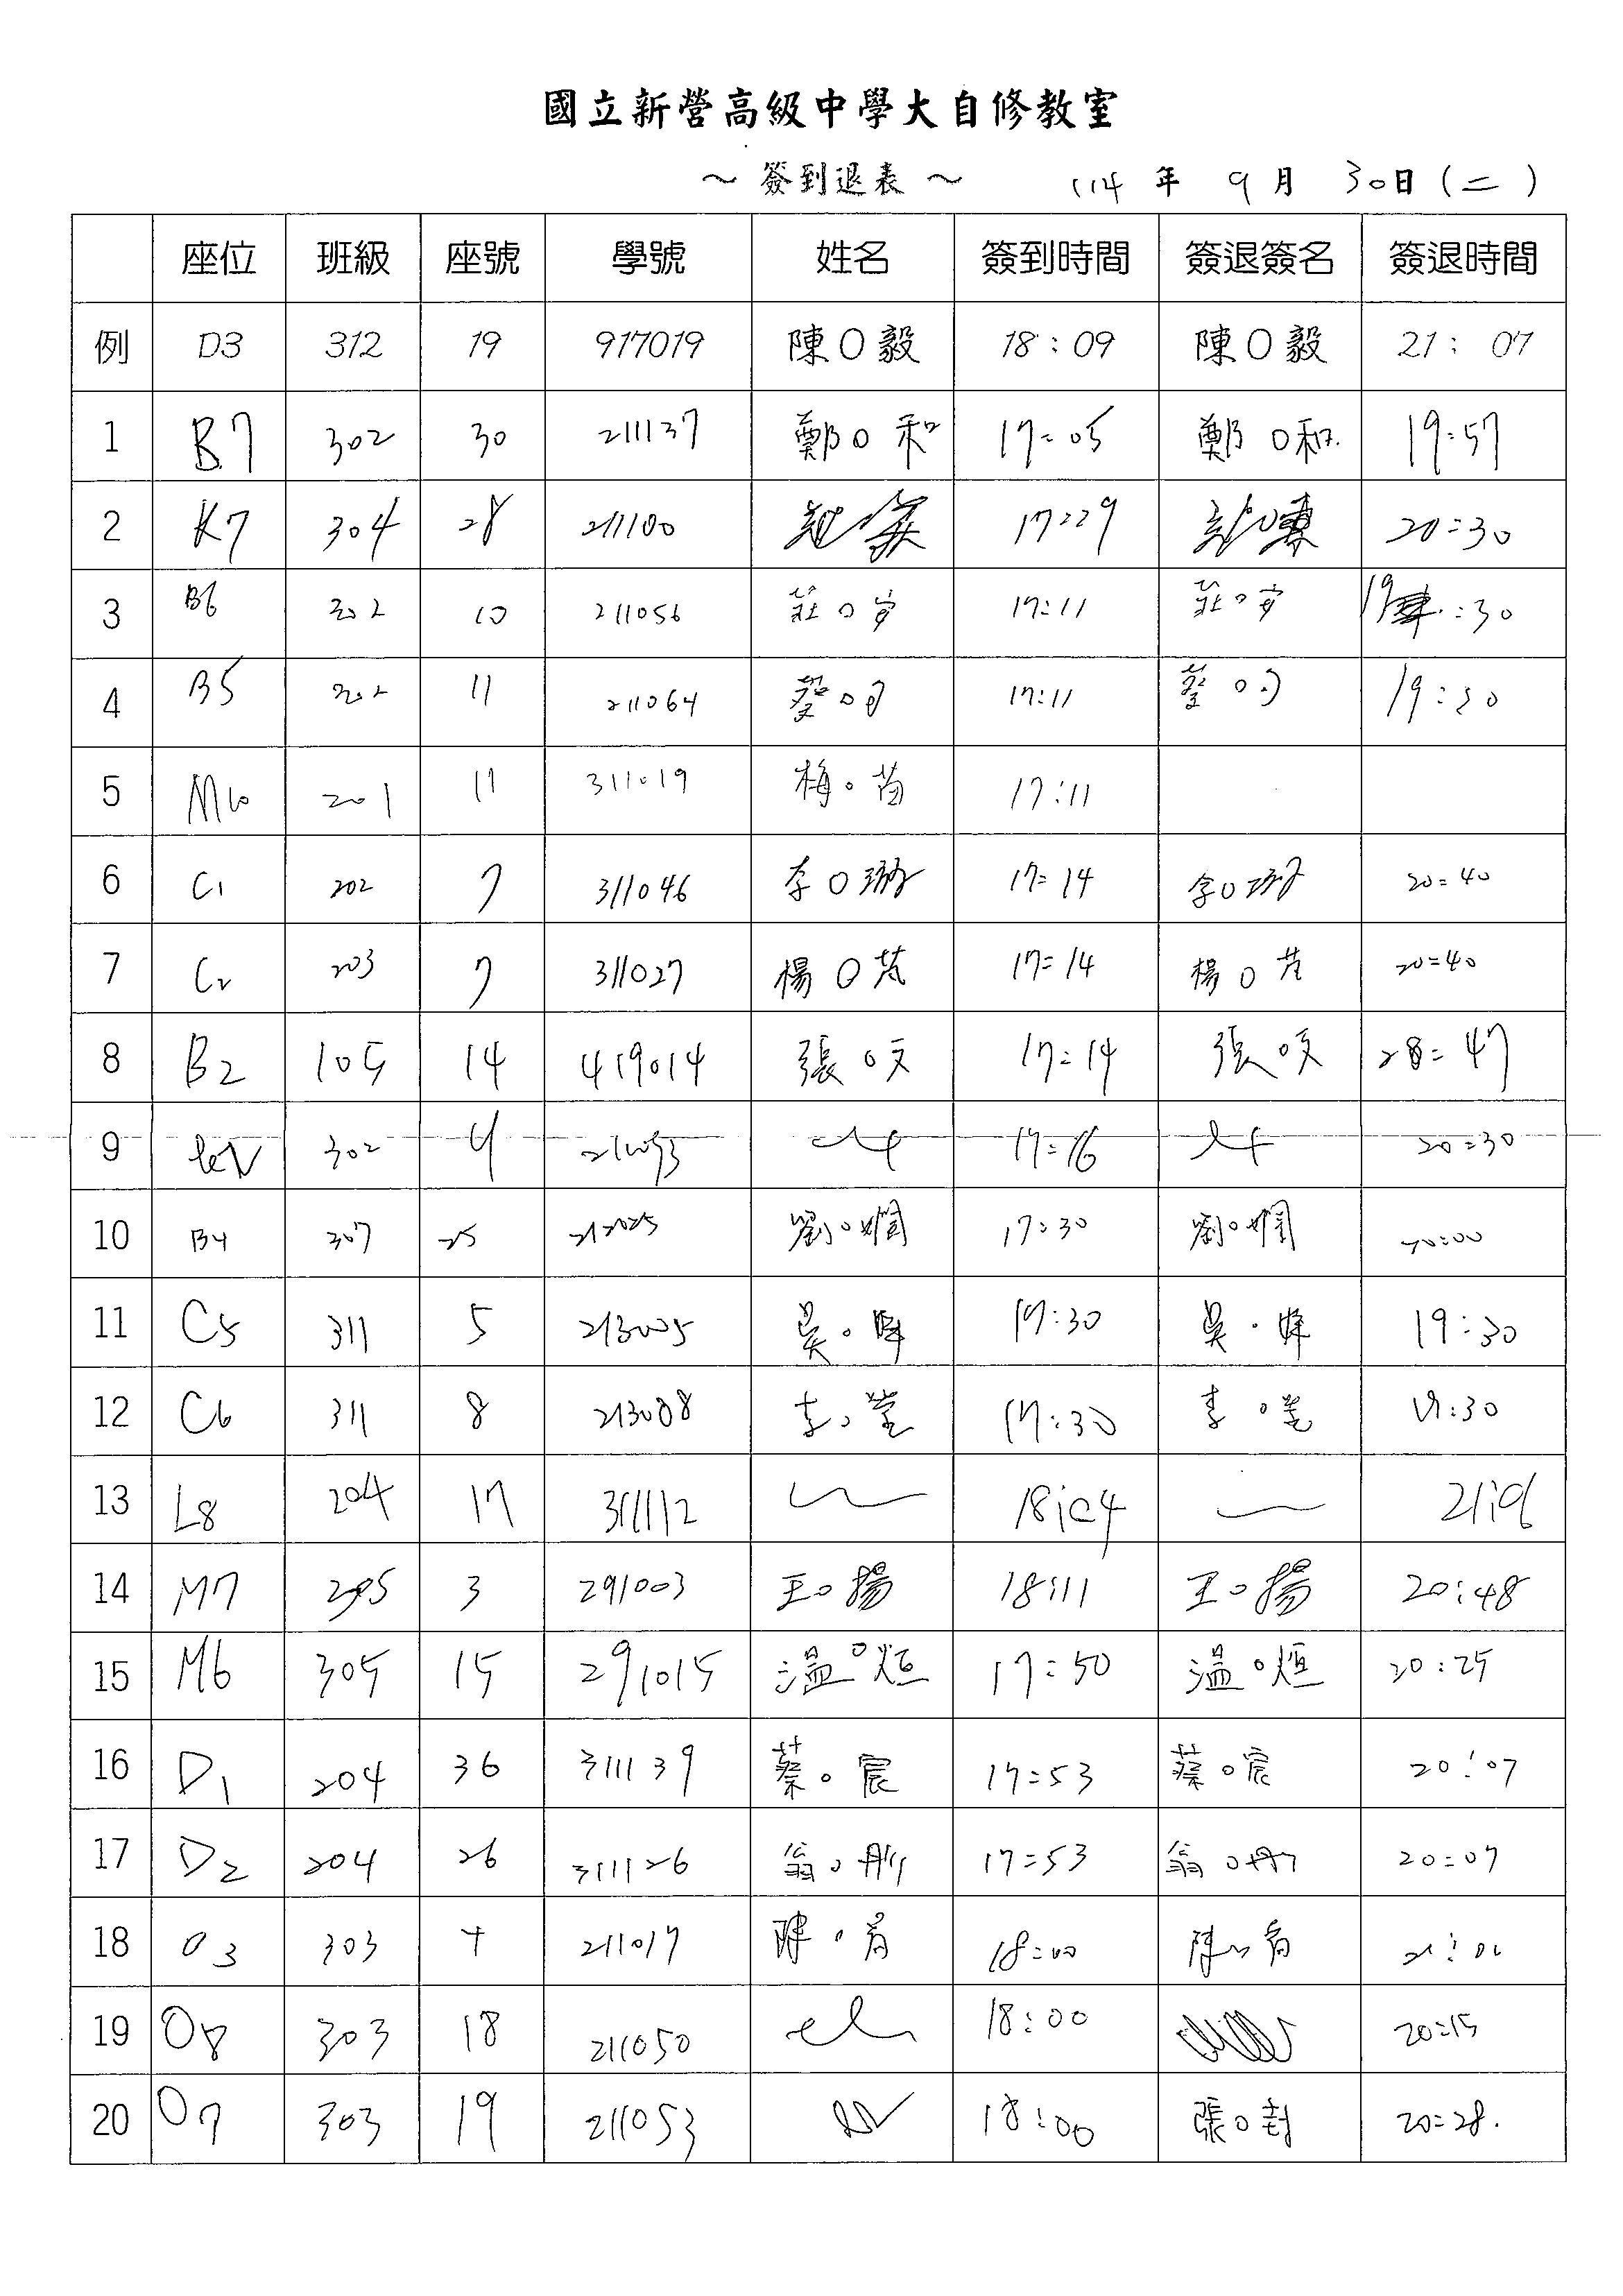 國立新營高級中學大自修教室
～ 簽到退表 ～ 114 年 9 月 30日 (二)
座位 班級 座號 學號 姓名 簽到時間 簽退簽名 簽退時間
例 D3 312 19 917019 陳O毅 18:09 陳O毅 21:07
1 B7 302 30 211137 鄭O和 17:05 鄭O和 19:57
2 K7 304 28 211100 17:29 20:30
3 B6 302 10 211056 莊O 17:11 莊O 19:30
4 B5 302 11 211064 蔡O 17:11 蔡O 19:30
5 M10 201 11 311019 梅O 17:11
6 C1 202 7 311046 李O 17:14 李O 20:40
7 C2 203 7 311027 楊O 17:14 楊O 20:40
8 B2 105 14 419014 張O文 17:14 張O文 47
9 302 4 17:16 20:30
10 B4 307 25 212025 劉O嫻 17:30 劉O嫻 20:00
11 C5 311 5 213005 吳O 17:30 吳O 19:30
12 C6 311 8 213008 李O 17:30 李O 19:30
13 L8 204 17 311112 18:04
14 M7 205 3 291003 王O揚 18:11 王O揚 20:48
15 M6 305 15 291015 溫O烜 17:50 溫O烜 20:25
16 D1 204 36 311139 蔡O宸 17:53 蔡O宸 20:07
17 D2 204 26 311126 翁O彤 17:53 翁O 20:07
18 O3 303 211017 陳O 18:00 陳O
19 O8 303 18 211050 18:00 20:15
20 O7 303 19 211053 18:00 張O封 20:28.